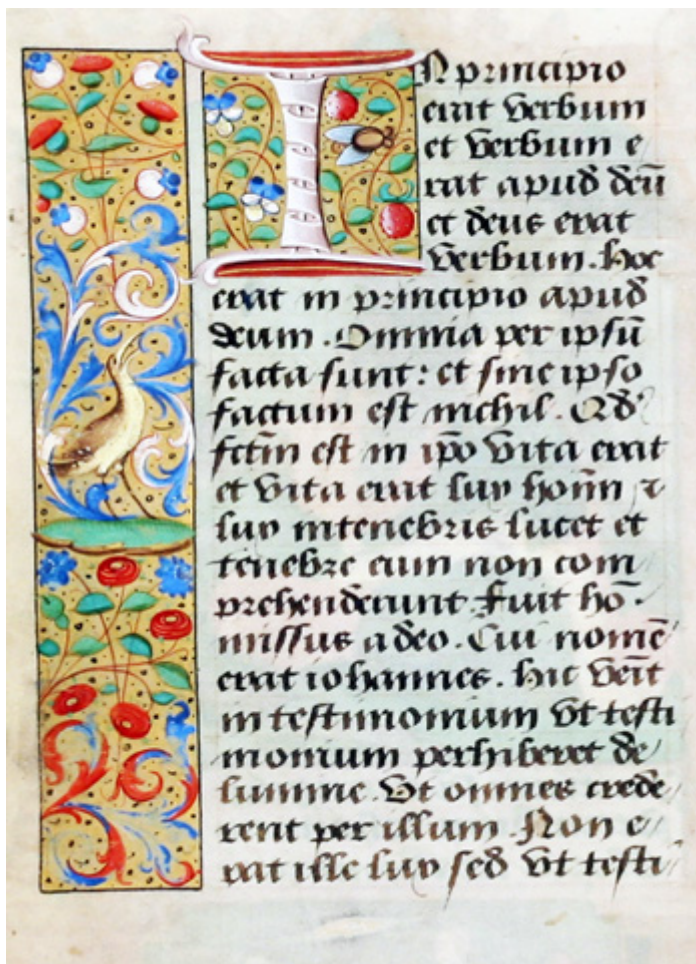 IN principio
erat verbum
et verbum e
rat apud deū
et deus erat
verbum. hoc
erat in principio apud
deum. Omnia per ipsū
facta sunt: et sine ipso
factum est nichil. Qd'
fctm̄ est in ip̄o vita erat
et vita erat lux hoīm̄ ꝛ
lux intenebris lucet et
tenebre eum non com
prehenderunt. Fuit hō.
missus a deo. Cui nomē
erat iohannes. hic veīt
in testimonium vt testi
monium perhiberet de
lumine. Vt omnes crede
rent per illum. Non e
rat ille lux sed vt testi